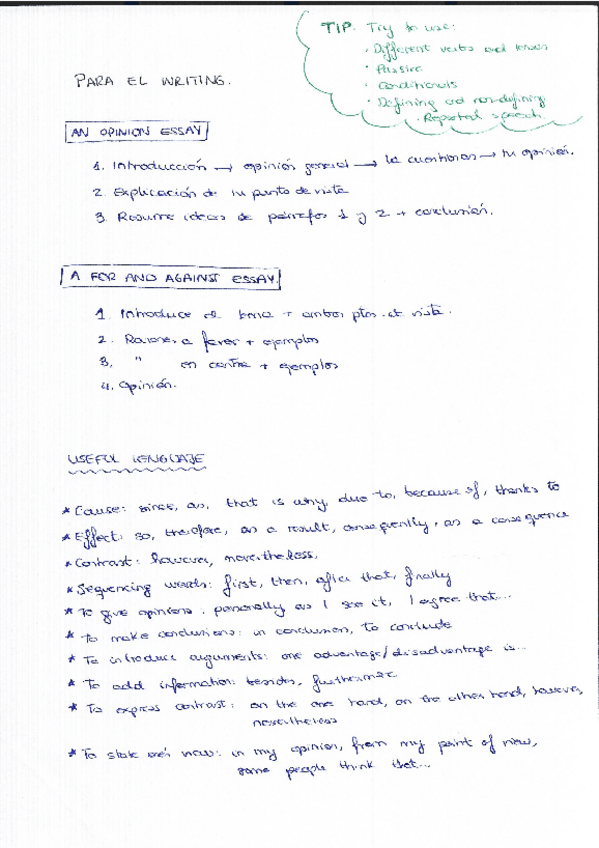 TIP. Try to use:
· Different verbs and tenses
· Passive
· Conditionals
· Defining and non-defining
· Reported speech
PARA EL WRITING.
AN OPINION ESSAY
1. Introducción → opinión general → la cuestionas → tu opinión.
2. Explicación de tu punto de vista
3. Resume ideas de párrafos 1 y 2 + conclusión.
A FOR AND AGAINST ESSAY
1. Introduce el tema + ambos ptos. de vista.
2. Razones a favor + ejemplos
3. " en contra + ejemplos
4. Opinión.
USEFUL LENGUAJE
* Cause: since, as, that is why, due to, because of, thanks to
* Effect: so, therefore, as a result, consequently, as a consequence
* Contrast: however, nevertheless.
* Sequencing words: first, then, after that, finally
* To give opinions: personally as I see it, I agree that...
* To make conclusions: in conclusion, to conclude
* To introduce arguments: one advantage/disadvantage is...
* To add information: besides, furthermore
* To express contrast: on the one hand, on the other hand, however,
nevertheless
* To state one's view: in my opinion, from my point of view,
some people think that...